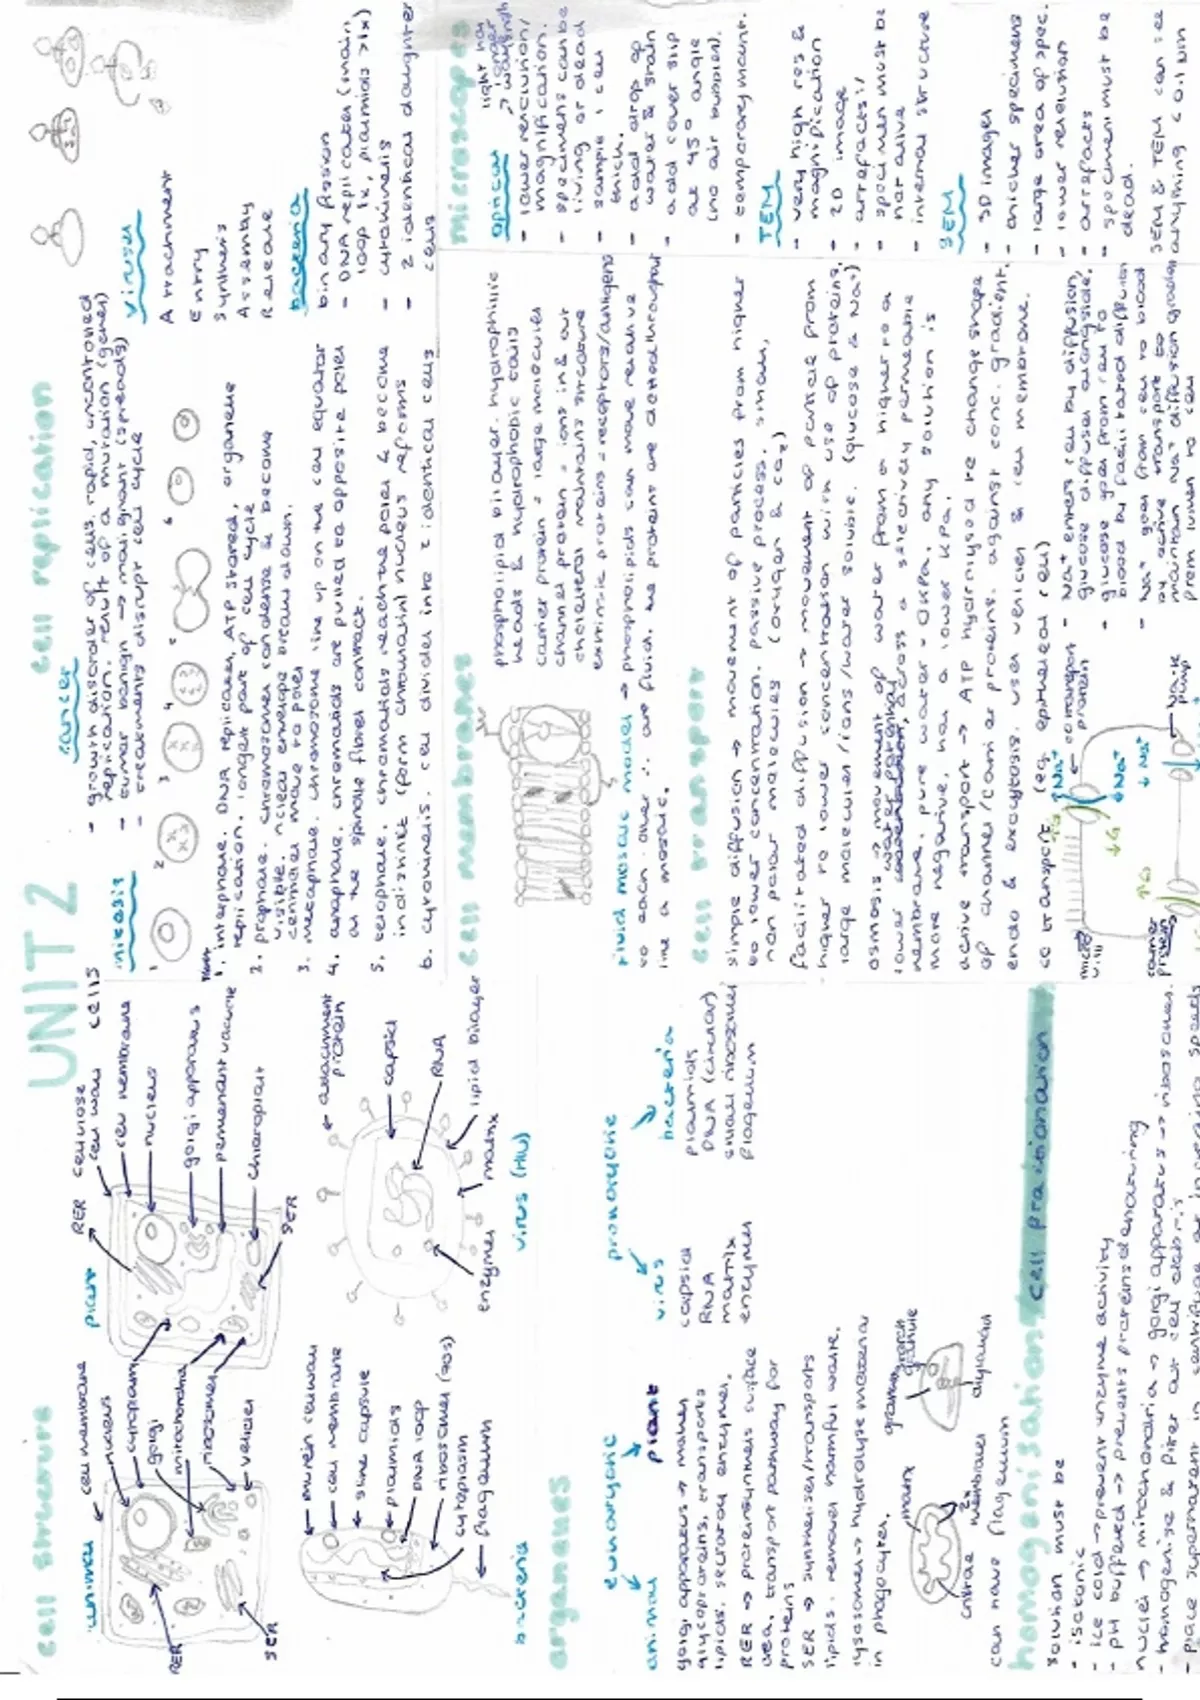 UNIT 2
cell structure
animal
cell membrane
nucleus
cytoplasm
golgi
mitochondria
ribosomes
vesicles
RER
SER
plant
RER
cellulose
cell wall
cells
cell membrane
nucleus
golgi apparatus
permenant vacuole
chloroplast
SER
murein cell wall
cell membrane
slime capsule
plasmids
DNA loop
ribosomes (70s)
cytoplasm
flagellum
bacteria
attachment
protein
capsid
RNA
lipid bilayer
matrix
enzymes
virus (HIV)
organelles
eukaryotic
animal
plant
golgi apparatus → makes
glycoproteins, transports
lipids, secretory enzymes.
RER → protein synthesis surface
area, transport pathway for
proteins
SER → synthesises/transports
lipids. removes harmful waste.
lysosomes → hydrolyse material
in phagocytes.
prokaryotic
virus
bacteria
capsid
RNA
matrix
enzymes
plasmids
DNA (circular)
small ribosomes
flagellum
matrix
cristae
2x
membranes
granum
starch
granule
thylakoid
can have flagellum
homogenisation/ cell fractionation
solution must be
- isotonic
- ice cold → prevent enzyme activity
- pH buffered → prevents proteins denaturing
nuclei → mitochondria → golgi apparatus → ribosomes.
- homogenise & filter out cell debris
- place supernatent in centrifuge at increasing speeds
cell replication
cancer
- growth disorder of cells, rapid, uncontrolled
replication. result of a mutation (genes)
- tumor benign → malignant (spreads)
- treatments disrupt cell cycle
mitosis
1
2
3
4
5
6
1. interphase. DNA replicates, ATP stored, organelle
replication. longest part of cell cycle
2. prophase. chromosomes condense & become
visible. nuclear envelope breaks down.
centrioles move to poles
3. metaphase. chromosomes line up on the cell equator
4. anaphase. chromatids are pulled to opposite poles
as the spindle fibres contract.
5. telophase. chromatids reach the poles & become
indistinct (form chromatin) nucleus reforms
6. cytokinesis. cell divides into 2 identical cells
viruses
Attachment
Entry
Synthesis
Assembly
Release
bacteria
binary fission
- DNA replicates (main
loop 1x, plasmids >1x)
- cytokinesis
- 2 identical daughter
cells
cell membranes
phospholipid bilayer. hydrophillic
heads & hydrophobic tails
carrier protein = large molecules
channel protein = ions in & out
cholesterol maintains structure
extrinsic proteins = receptors/antigens
fluid mosaic model → phospholipids can move relative
to each other ∴ are fluid. the proteins are dotted throughout
like a mosaic.
cell transport
simple diffusion → movement of particles from higher
to lower concentration. passive process. small,
non polar molecules (oxygen & CO₂)
facilitated diffusion → movement of particle from
higher to lower concentration with use of proteins.
large molecules/ions/water soluble. (glucose & Na⁺)
osmosis → movement of water from a higher to a
lower water potential, across a selectively permeable
membrane. pure water = 0kPa, any solution is
more negative, has a lower kPa.
active transport → ATP hydrolysed to change shape
of channel/carrier proteins. against conc. gradient.
endo & exocytosis. uses vesicles & cell membrane.
co transport (eg. epithelial cell)
cotransport
protein
micro
villi
carrier
protein
Na/K
pump
Na⁺
Na⁺
Na⁺
- Na⁺ enters cell by diffusion,
glucose diffuses alongside.
- glucose goes from cell to
blood by facilitated diffusion
- Na⁺ goes from cell to blood
by active transport to
maintain Na⁺ diffusion gradient
from lumen to cell
microscopes
optical
light has
→ longer
wavelength
- lower resolution/
magnification.
- specimens can be
living or dead
- sample 1 cell
thick.
- add drop of
water & stain
- add cover slip
at 45° angle
(no air bubbles).
- temporary mount.
TEM
- very high res &
magnification
- 2D image
- artefacts!!
- specimen must be
not alive
- internal structure
SEM
- 3D images
- thicker specimens
- large area of spec.
- lower resolution
- artefacts
- specimen must be
dead.
SEM & TEM can see
anything < 0.1 nm